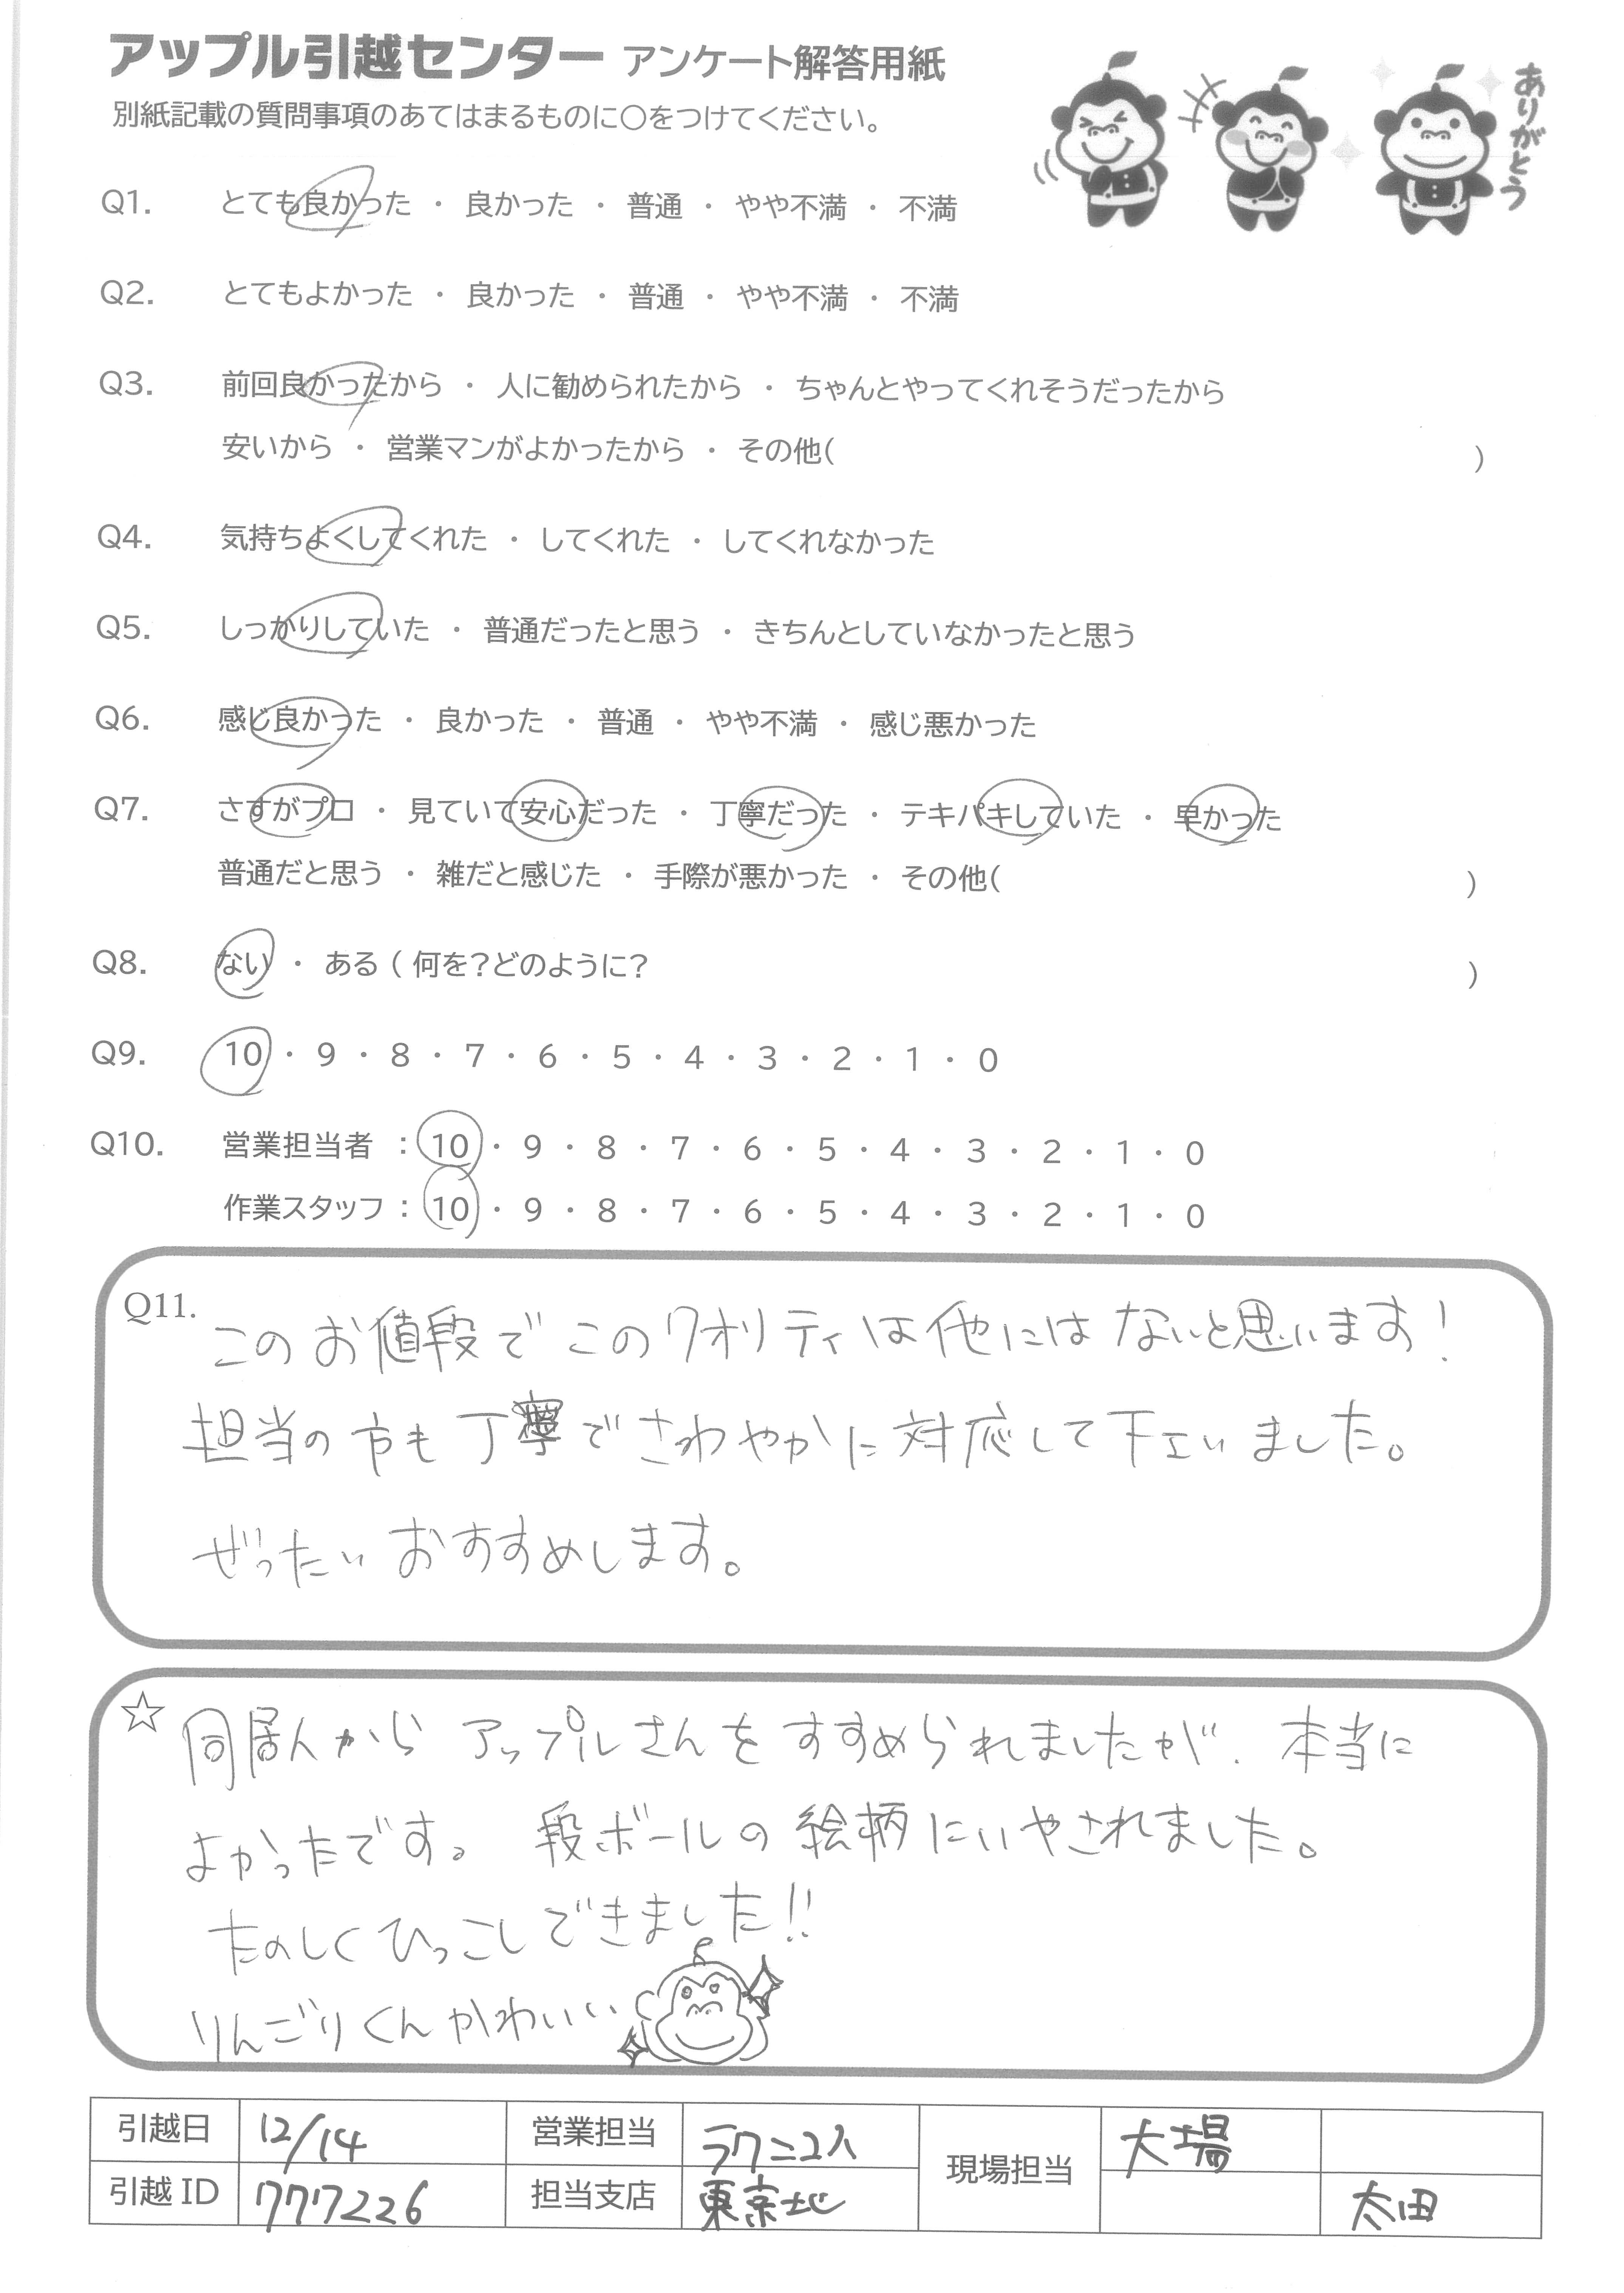 アップル引越センター アンケート解答用紙
別紙記載の質問事項のあてはまるものに〇をつけてください。
ありがとう
Q1. とても良かった ・ 良かった ・ 普通 ・ やや不満 ・ 不満
Q2. とてもよかった ・ 良かった ・ 普通 ・ やや不満 ・ 不満
Q3. 前回良かったから ・ 人に勧められたから ・ ちゃんとやってくれそうだったから
安いから ・ 営業マンがよかったから ・ その他( )
Q4. 気持ちよくしてくれた ・ してくれた ・ してくれなかった
Q5. しっかりしていた ・ 普通だったと思う ・ きちんとしていなかったと思う
Q6. 感じ良かった ・ 良かった ・ 普通 ・ やや不満 ・ 感じ悪かった
Q7. さすがプロ ・ 見ていて安心だった ・ 丁寧だった ・ テキパキしていた ・ 早かった
普通だと思う ・ 雑だと感じた ・ 手際が悪かった ・ その他( )
Q8. ない ・ ある ( 何を?どのように? )
Q9. 10 ・ 9 ・ 8 ・ 7 ・ 6 ・ 5 ・ 4 ・ 3 ・ 2 ・ 1 ・ 0
Q10. 営業担当者 : 10 ・ 9 ・ 8 ・ 7 ・ 6 ・ 5 ・ 4 ・ 3 ・ 2 ・ 1 ・ 0
作業スタッフ : 10 ・ 9 ・ 8 ・ 7 ・ 6 ・ 5 ・ 4 ・ 3 ・ 2 ・ 1 ・ 0
Q11. このお値段でこのクオリティは他にはないと思います!
担当の方も丁寧でさわやかに対応して下さいました。
ぜったいおすすめします。
☆ 同居人からアップルさんをすすめられましたが、本当に
よかったです。段ボールの絵柄にいやされました。
たのしくひっこしできました!!
りんごりくんかわいい
引越日 12/14 営業担当 ラクニコス 現場担当 大場
引越ID 7777226 担当支店 東京北 太田